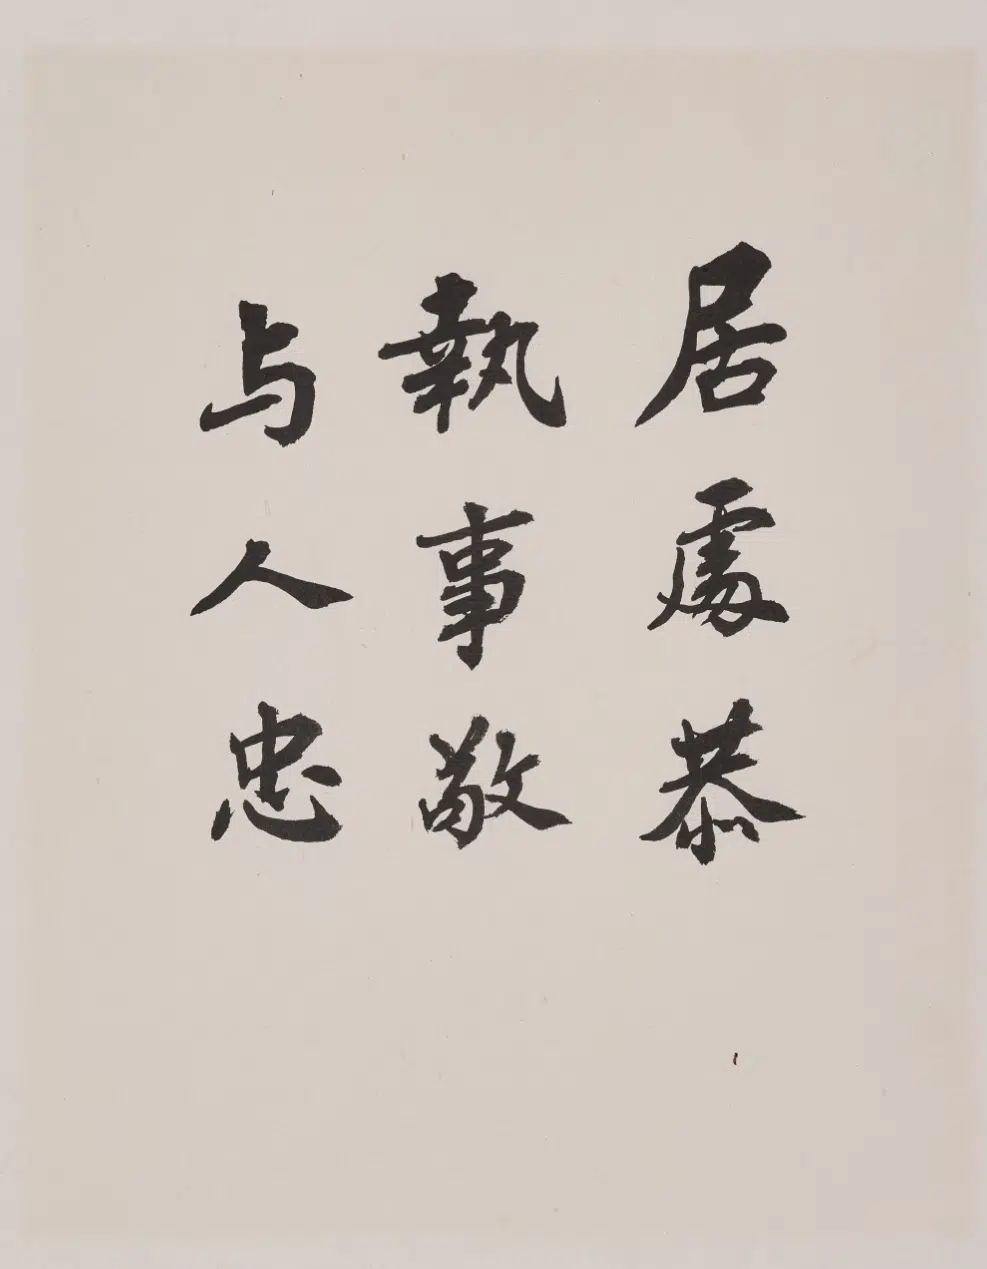 居處恭
執事敬
与人忠